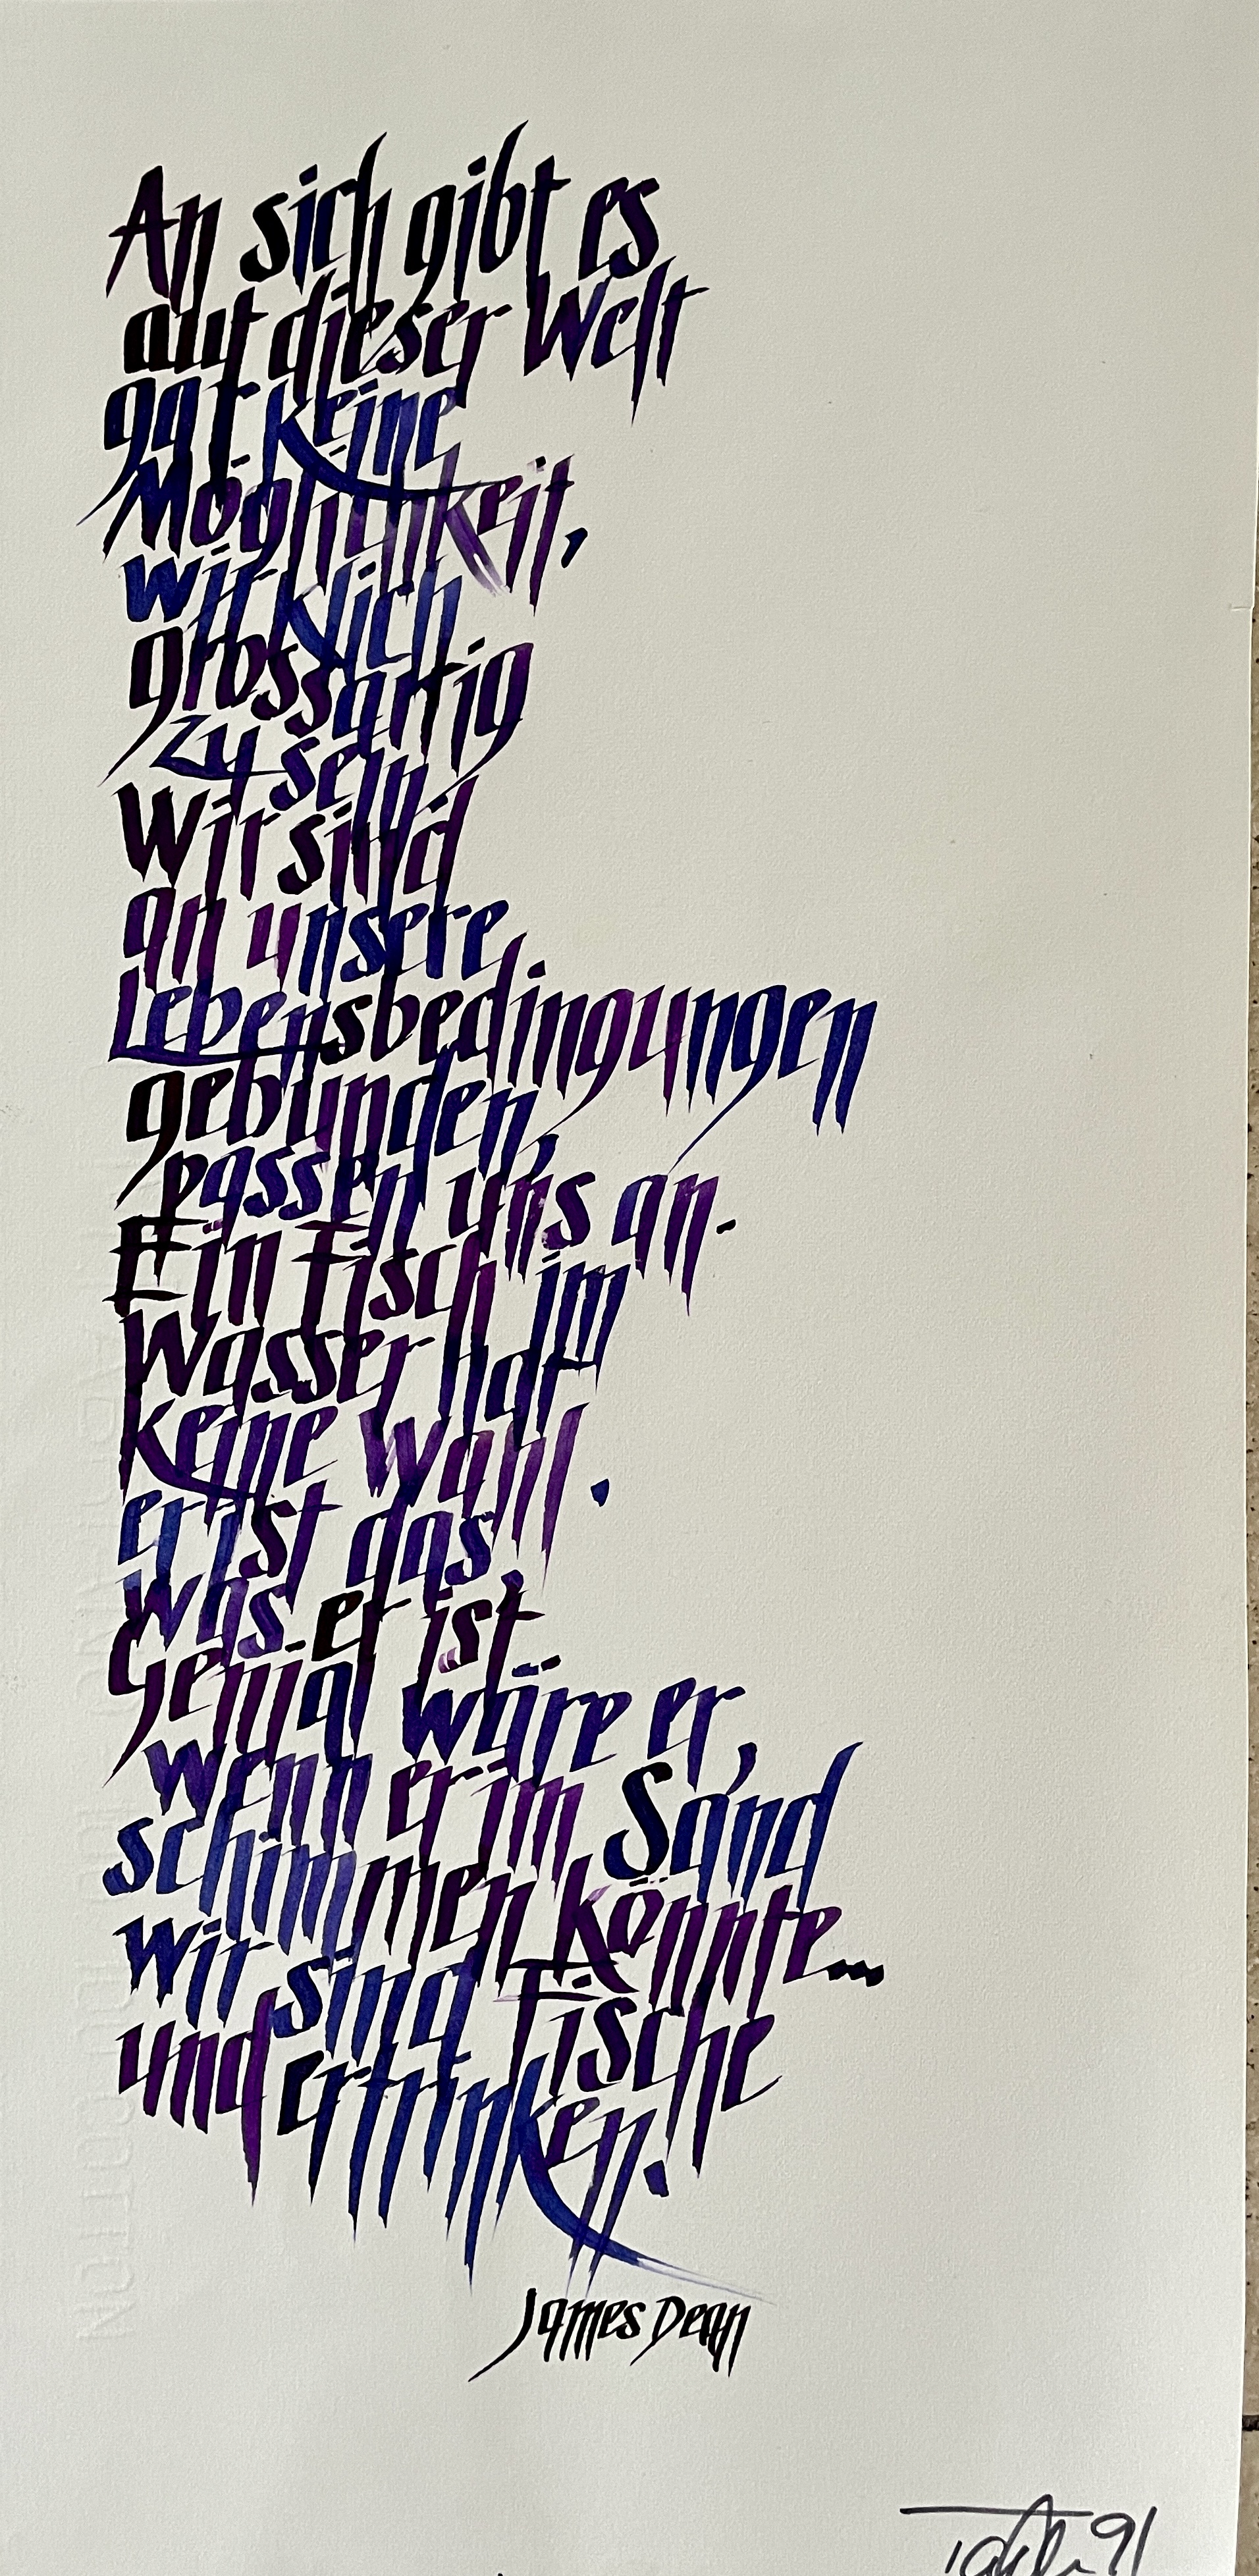 An sich gibt es
auf dieser Welt
gar keine
Möglichkeit,
wirklich
grossartig
zu sein.
Wir sind
an unsere
Lebensbedingungen
gebunden,
passen uns an.
Ein Fisch im
Wasser hat
keine Wahl.
er ist das,
was er ist
Genial wäre er,
wenn er im Sand
schimmen könnte...
wir sind Fische
und ertrinken.
James Dean
91